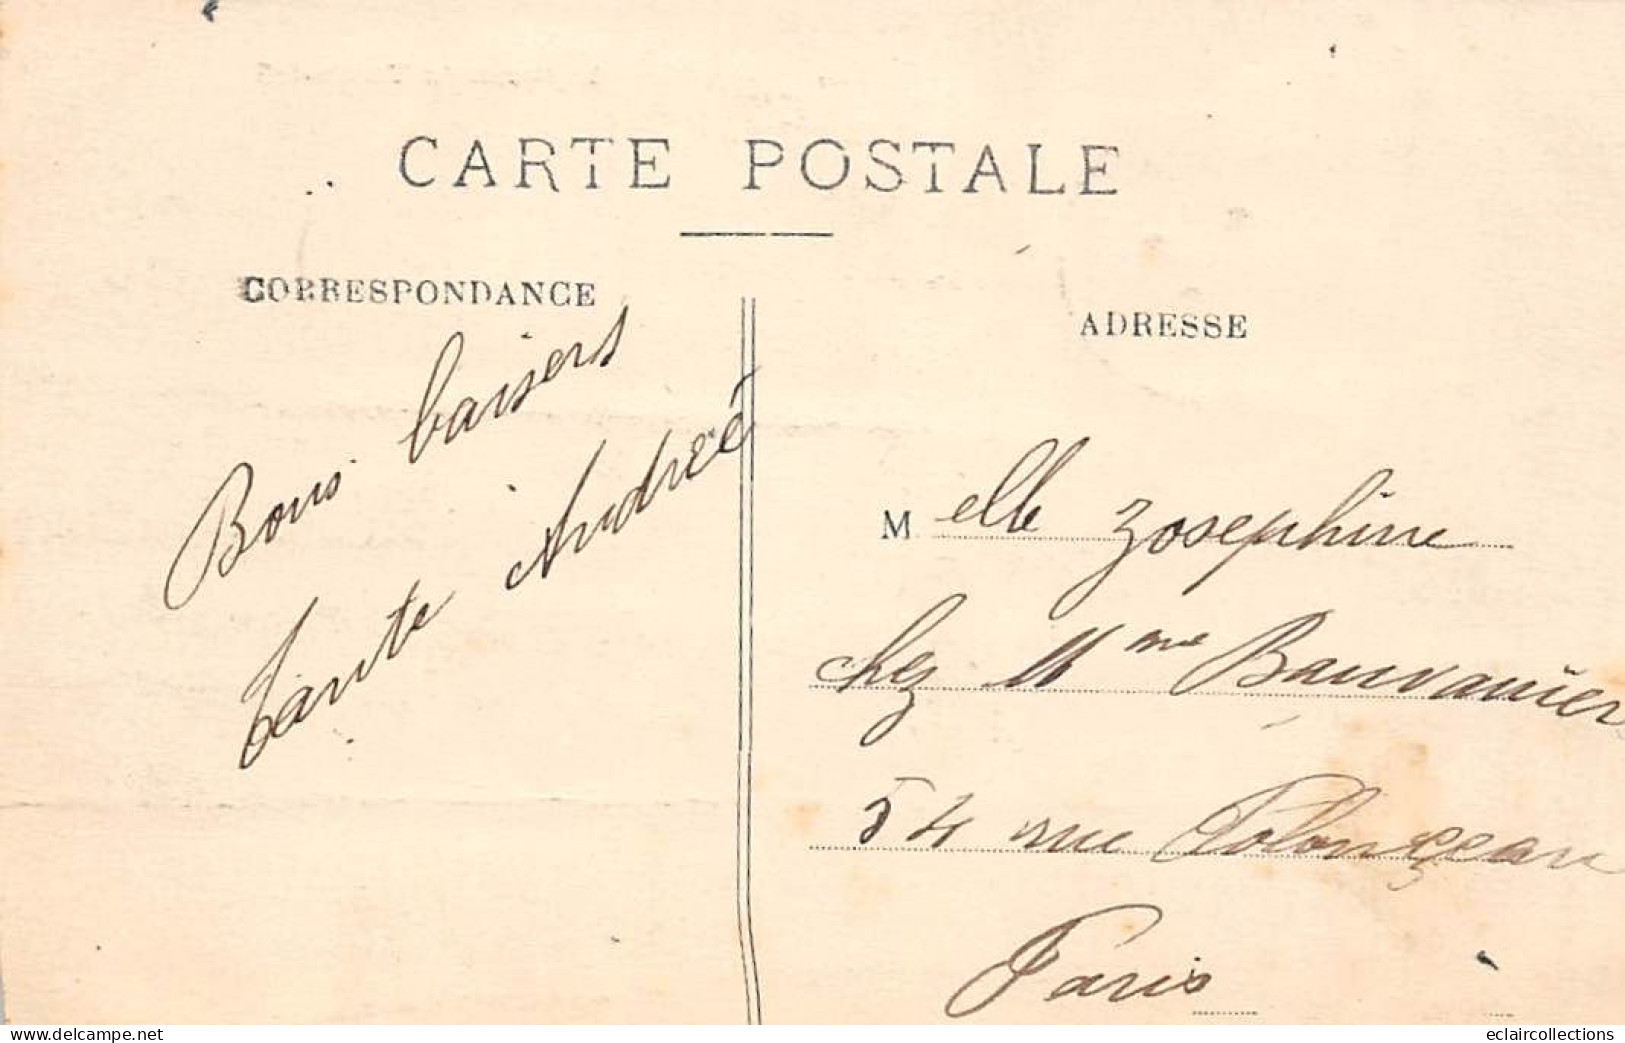 CARTE POSTALE
CORRESPONDANCE
ADRESSE
Bons baisers
Tante Andrée
Melle Josephine
chez Mme Bauvanier
54 rue Polonceau
Paris
www.delcampe.net
eclaircollections